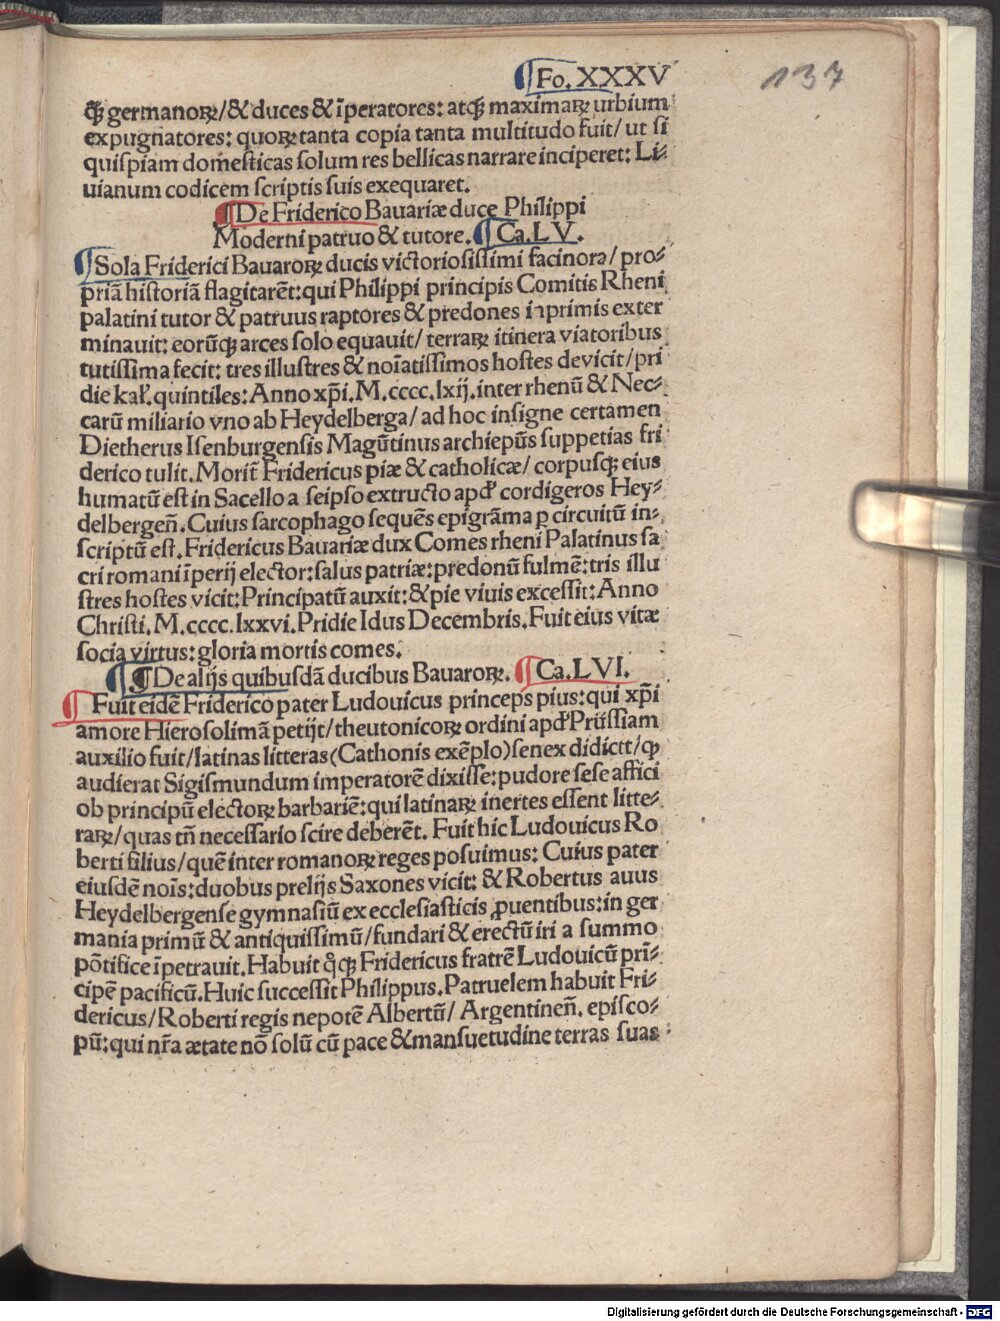 ¶Fo. XXXV
137
qꝫ germanoꝝ/& duces & īperatores: atqꝫ maximaꝝ urbium
expugnatores: quoꝝ tanta copia tanta multitudo fuit/ut si
quispiam domesticas solum res bellicas narrare inciperet: Li⸗
uianum codicem scriptis suis exequaret.
¶De Friderico Bauariæ duce Philippi
Moderni patruo & tutore. ¶Ca.LV.
¶Sola Friderici Bauaroꝝ ducis victoriosissimi facinora/ pro⸗
priā historiā flagitarēt: qui Philippi principis Comitis Rheni
palatini tutor & patruus raptores & predones inprimis exter
minauit: eorūqꝫ arces solo equauit/ terraꝝ itinera viatoribus
tutissima fecit: tres illustres & noīatissimos hostes devicit/pri
die kal'. quintiles: Anno xp̄i. M.cccc.lxij. inter rhenū & Nec⸗
carū miliario vno ab Heydelberga/ ad hoc insigne certamen
Dietherus Isenburgensis Magūtinus archiepūs suppetias fri
derico tulit. Morit̄ Fridericus piæ & catholicæ/ corpusqꝫ eius
humatū est in Sacello a seipso extructo apd' cordigeros Hey⸗
delbergeñ. Cuius sarcophago sequēs epigrāma ꝑ circuitū in⸗
scriptū est. Fridericus Bauariæ dux Comes rheni Palatinus sa
cri romani īperij elector: salus patriæ: predonū fulmē: tris illu
stres hostes vicit: Principatū auxit: & pie viuis excessit: Anno
Christi. M.cccc.lxxvi. Pridie Idus Decembris. Fuit eius vitæ
socia virtus: gloria mortis comes.
¶¶De alijs quibusdā ducibus Bauaroꝝ. ¶Ca.LVI.
¶Fuit eidē Friderico pater Ludouicus princeps pius: qui xp̄i
amore Hierosolimā petijt/theutonicoꝝ ordini apd' Prüssiam
auxilio fuit/latinas litteras (Cathonis exēplo) senex didictt/ꝙ
audierat Sigismundum imperatorē dixisse: pudore sese affici
ob principū electoꝝ barbariē: qui latinaꝝ inertes essent litte⸗
raꝝ/quas tñ necessario scire deberēt. Fuit hic Ludouicus Ro
berti filius/quē inter romanoꝝ reges posuimus: Cuius pater
eiusdē noīs: duobus prelijs Saxones vicit: & Robertus auus
Heydelbergense gymnasiū ex ecclesiasticis ꝓuentibus: in ger
mania primū & antiquissimū/fundari & erectū iri a summo
pōtifice īpetrauit. Habuit q̊qꝫ Fridericus fratrē Ludouicū prī⸗
cipē pacificū. Huic successit Philippus. Patruelem habuit Fri⸗
dericus/Roberti regis nepotē Albertū/ Argentineñ. episco⸗
pū: qui nr̄a ætate nō solū cū pace & mansuetudine terras suas
Digitalisierung gefördert durch die Deutsche Forschungsgemeinschaft - DFG